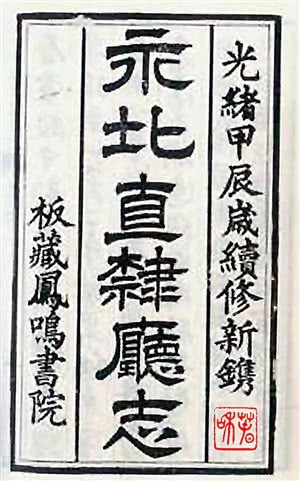 光緒甲辰歲續修新鐫
永北直隸廳志
板藏鳳鳴書院